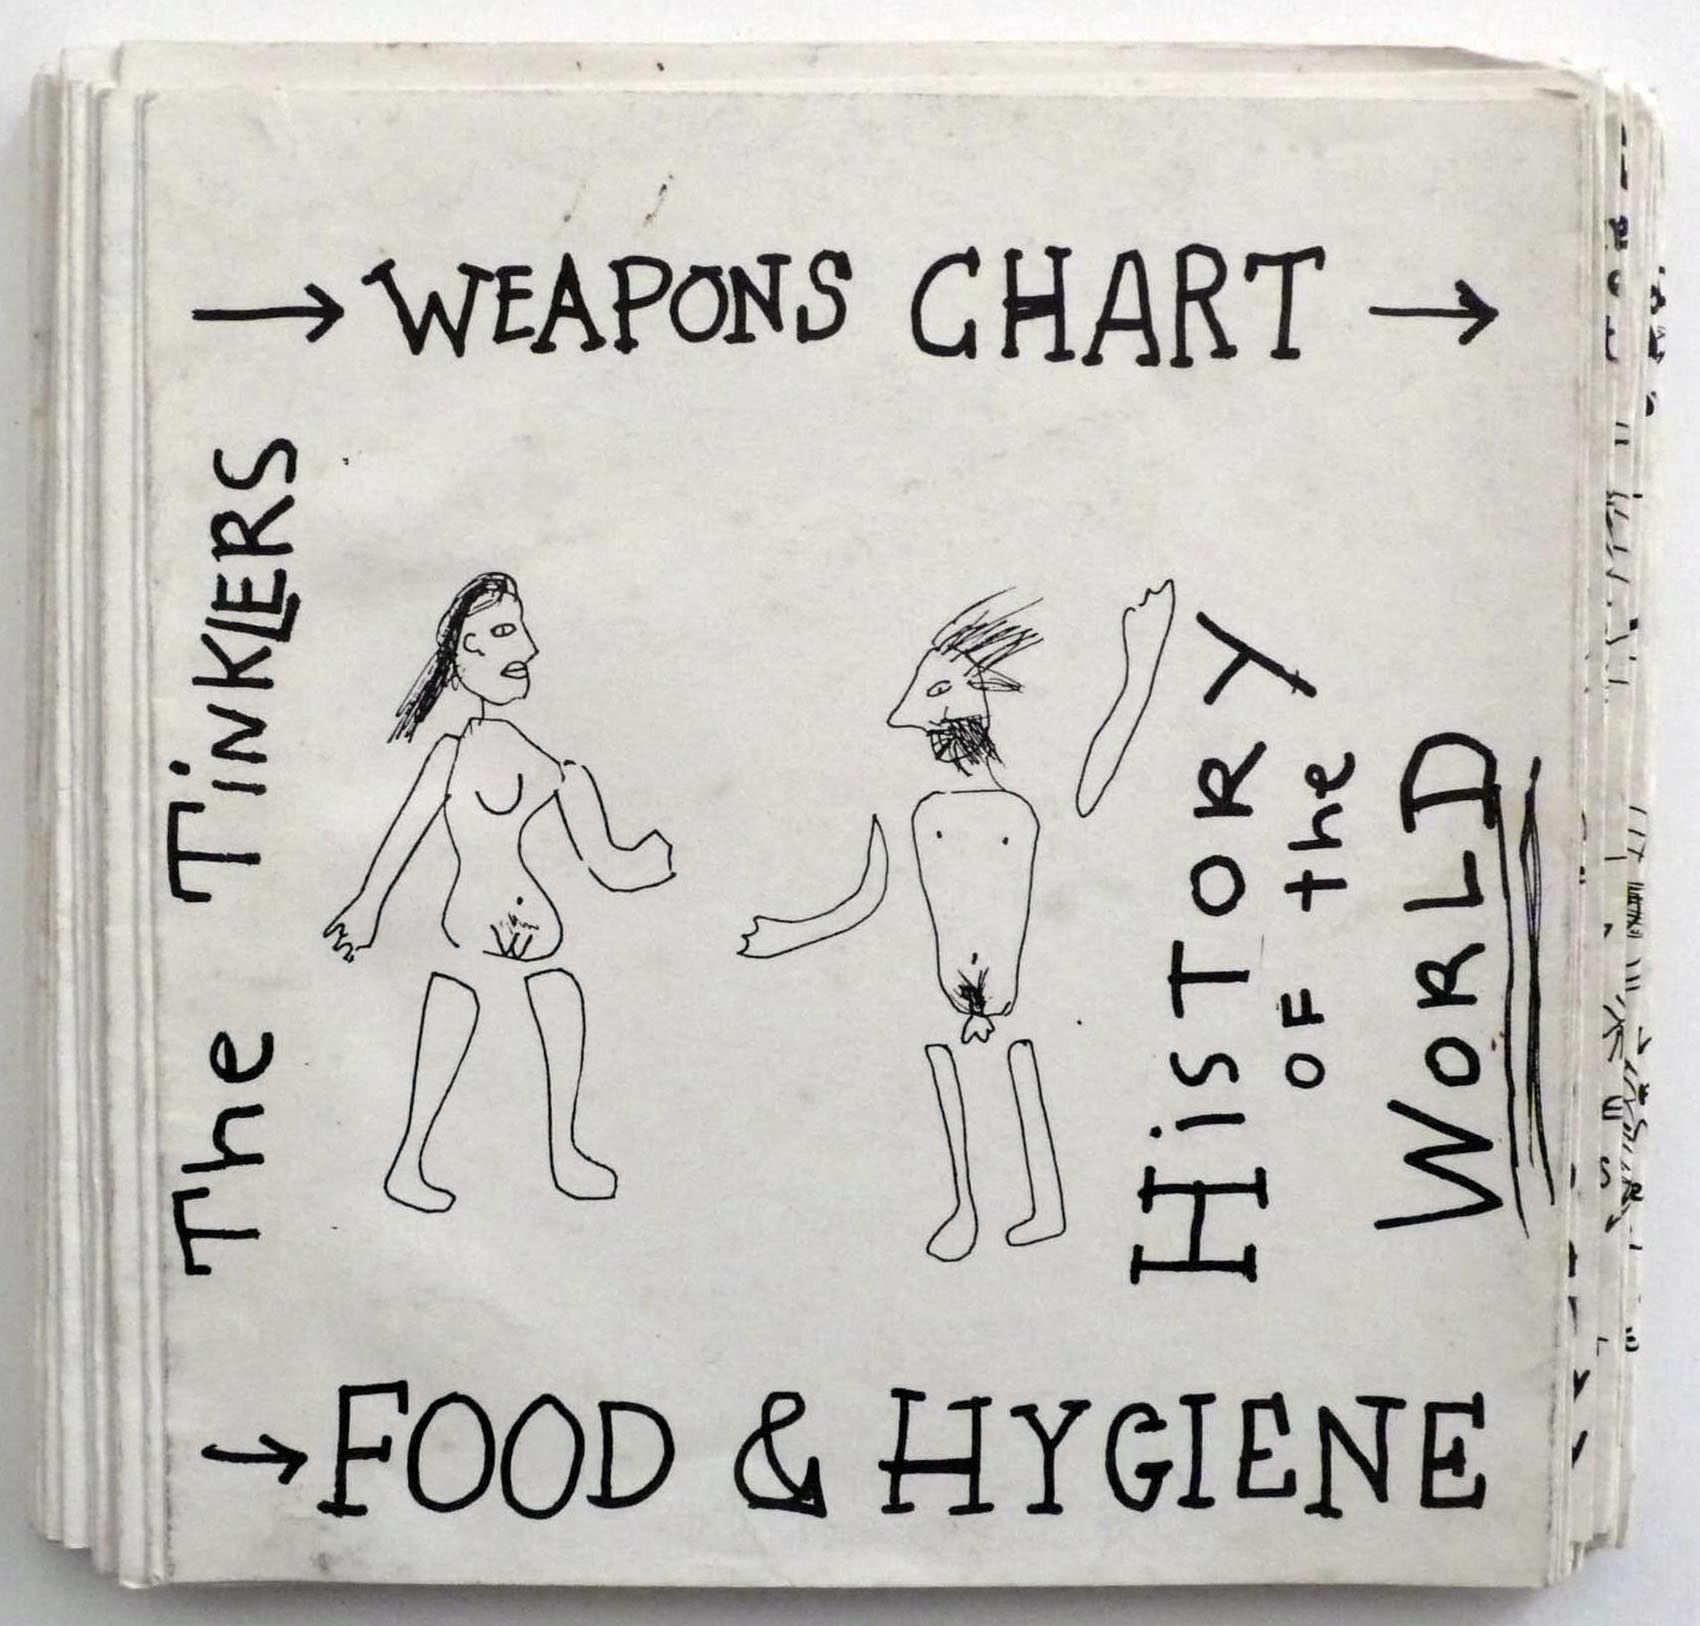 → WEAPONS CHART →
The TiNKLERS
HiSTORY
OF the
WORLD
→ FOOD & HYGIENE